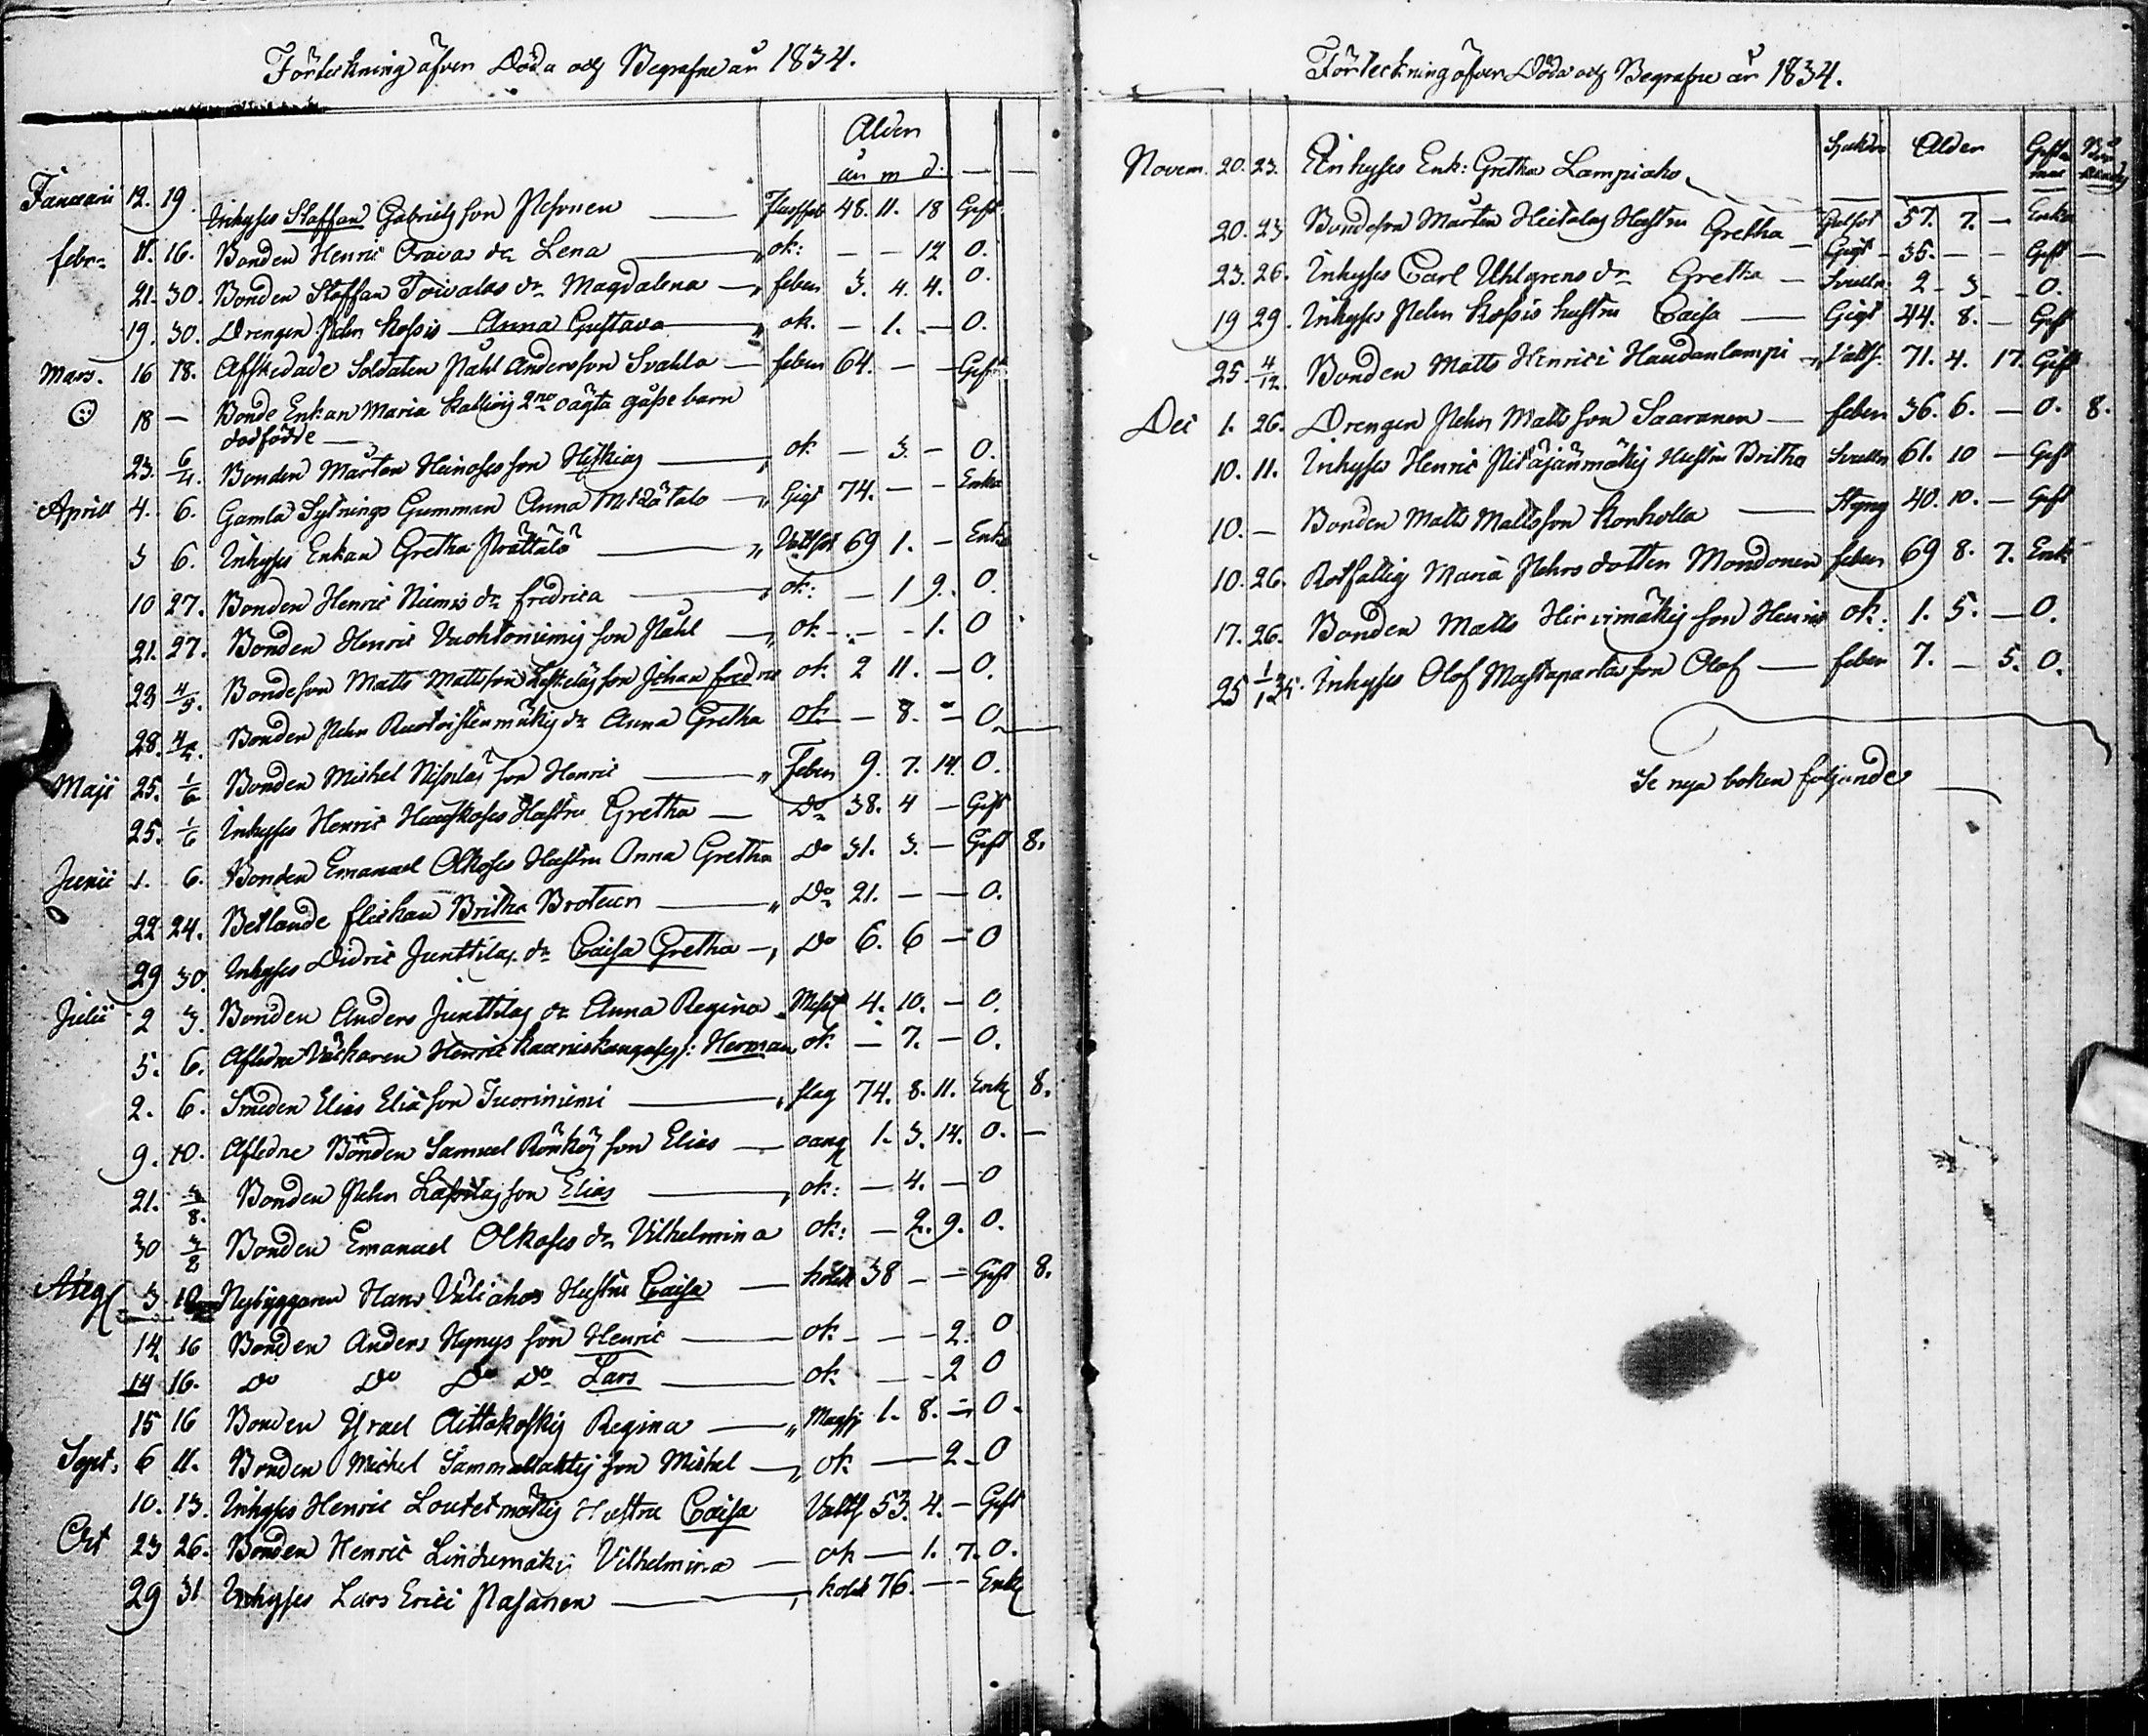 Förteckning öfver Döda och Begrafne år 1834.
Alder
år m d.
Januarii 12. 19. Inhyses Staffan Gabriels son Pesonen — 48. 11. 18 Gift
Febr: 11. 16. Bonden Henric Oravas dr Lena — ok: — — 12 0.
21. 30. Bonden Staffan Toivalas dr Magdalena — feber 3. 4. 4. 0.
19. 30. Drengen Pehr Kossis Anna Gustava — ok. — 1. — 0.
Mars. 16 18. Affskedade Soldaten Påhl Andersson Svahla — feber 64. — — Gift
18 — Bonde Enkan Maria 2no oägta gåsse barn
dödfödde —
23. 6/4. Bonden Mårten Heinoses son Hiskias — ok — 3. — 0.
Aprill 4. 6. Gamla Sytnings Gumman Anna — Gigt 74. — — Enka
3 6. Inhyses Enkan Gretha Prättälä — Vattsot 69 1. — Enka
10 27. Bonden Henric Niemis dr Fredrica — ok: — 1 9. 0.
21. 27. Bonden Henric Vuohtoniemis son Påhl — ok. — — 1. 0
23 4/5. Bondeson Matts Mattsson son Johan Fredric ok: 2 11. — 0.
28. 4/5. Bonden Pehr dr Anna Gretha ok. — 8. — 0.
Maji 25. 1/6 Bonden Michel Nissilas son Henric — Feber 9. 7. 14. 0.
25. 1/6 Inhyses Henric Hustru Gretha — Do 38. 4 — Gift
Junii 1. 6. Bonden Emanuel Olkoses Hustru Anna Gretha Do 31. 3. — Gift 8.
22 24. Betlande flickan Britha — Do 21. — — 0.
29 30. Inhyses Didric Junttilas dr Caisa Gretha — Do 6. 6 — 0
Julii 2 3. Bonden Anders Junttilas dr Anna Regina 4. 10. — 0.
5. 6. Afledne Henric s: Herman ok. — 7. — 0.
2. 6. Smeden Elias Eliæ son Tuoriniemi — slag 74. 8. 11. Enk 8.
9. 10. Afledne Bonden Samuel Rönkös son Elias — 1. 3. 14. 0. —
21. 3/8. Bonden Pehr Lassilas son Elias — ok: — 4. — 0
30 3/8 Bonden Emanuel Olkoses dr Vilhelmina ok: — 2. 9. 0.
Aug 3 10 Nybyggaren Hans Väliahos Hustru Caisa — 38 — — Gift 8.
14. 16 Bonden Anders Hynys son Henric — ok — — 2. 0
14 16. Do Do Do Do Lars — ok. — — 2 0
15 16 Bonden Israel Aittokoskis Regina — 1. 8. — 0.
Sept. 6 11. Bonden Michel Sammallahtis son Michel — ok. — — 2. 0
10. 13. Inhyses Henric Hustru Caisa Vatts 53. 4. — Gift
Oct 23 26. Bonden Henric Vilhelmina — ok — 1. 7. 0.
29 31 Inhyses Lars Erici Pasanen — 76. — — Enk
Förteckning öfver Döda och Begrafne år 1834.
Sjukdom Alder
Novem. 20. 23. Inhyses Enk: Gretha Lampiaho
20. 23 Bondeson Mårten Hietalas Hustru Gretha — 57. 7. — Enka
23. 26. Inhyses Carl Uhlgrens dr Gretha — Gigt 35. — — Gift —
19 29. Inhyses Pehr Kossis hustru Caisa — 2 3. — 0.
25. 4/12. Bonden Matts Henrici Haudanlampi — Gigt 44. 8. — Gift
Vatts. 71. 4. 17. Gift
Dec 1. 26. Drengen Pehr Matts son Saaranen — feber 36. 6. — 0. 8.
10. 11. Inhyses Henric Pitäjänmäkis Hustru Britha 61. 10 — Gift
10. — Bonden Matts Mattsson Konkolla — Styng 40. 10. — Gift
10. 26. Rotfattig Maria Pehrs dotter Mondonen feber 69 8. 7. Enk
17. 26. Bonden Matts Hirvimäkis son Henric ok: 1. 5. — 0.
25 1/1 35. Inhyses Olof Mastapartas son Olof — feber 7. — 5. 0.
Se nya boken följande